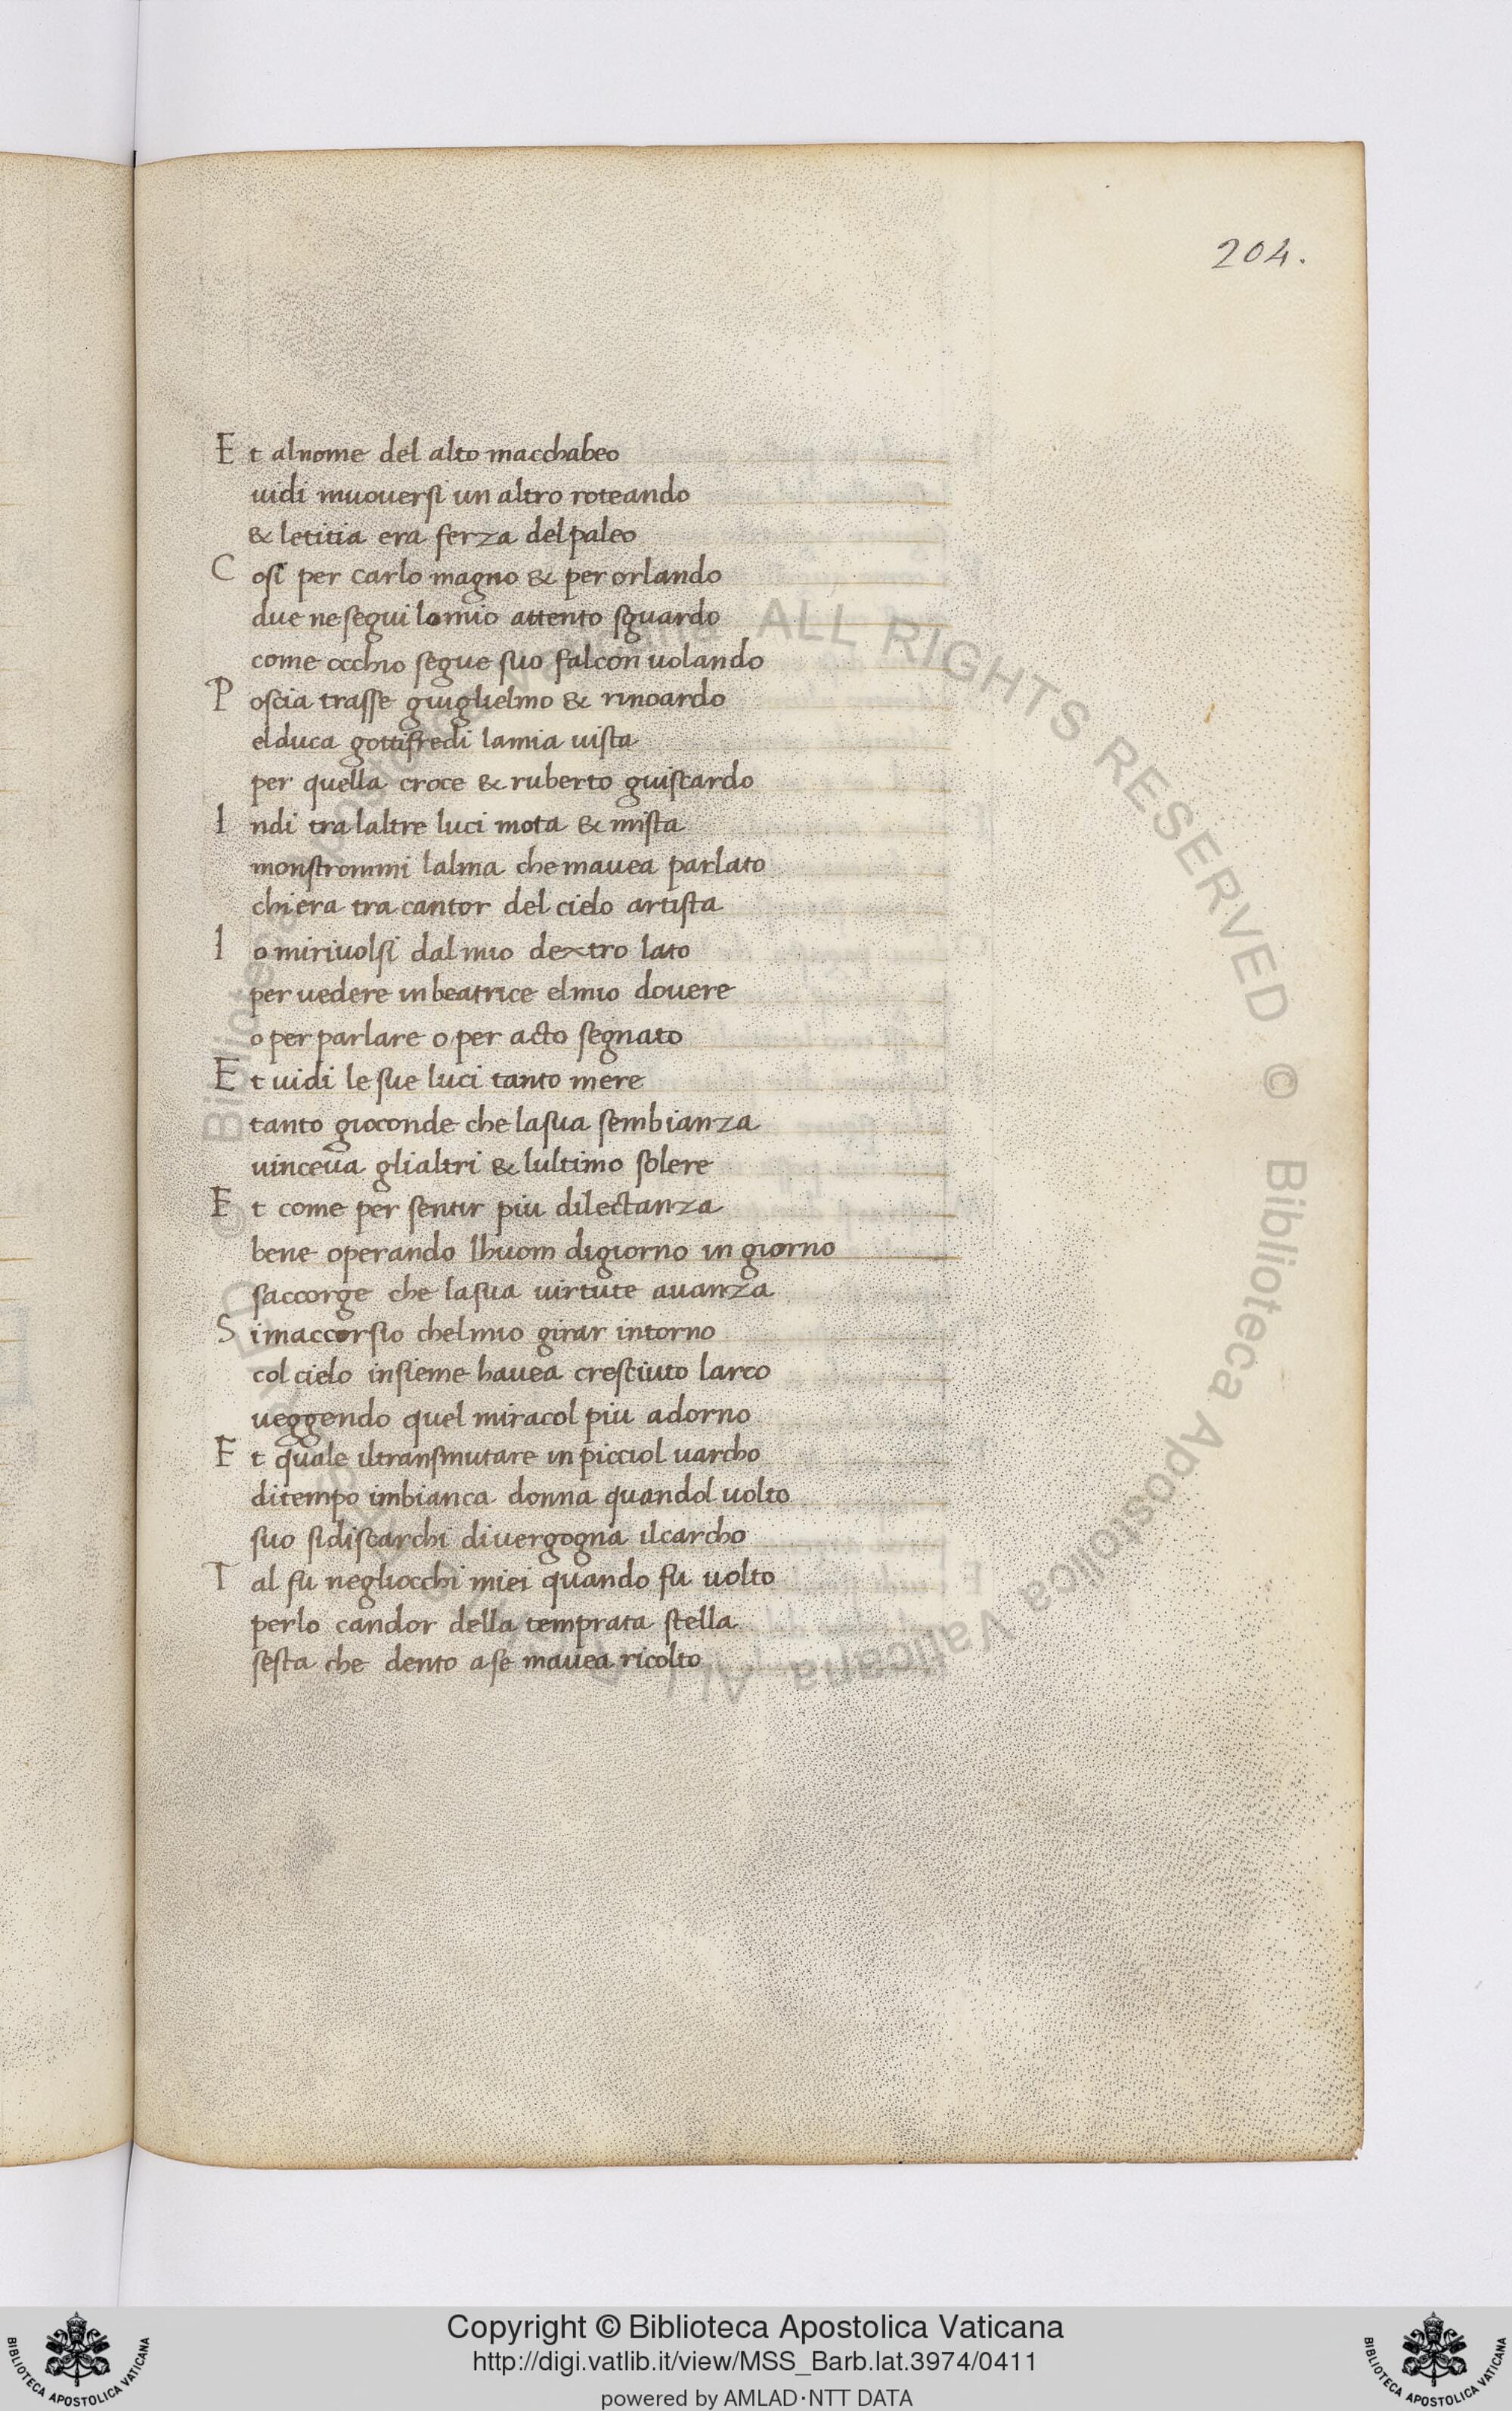 204.
Et alnome del alto macchabeo
uidi muouersi un altro roteando
& letitia era ferza delpaleo
Cosi per carlo magno & per orlando
due nesegui lomio attento sguardo
come occhio segue suo falcon uolando
Poscia trasse guiglielmo & rinoardo
elduca gottifredi lamia uista
per quella croce & ruberto guiscardo
Indi tra laltre luci mota & mista
monstrommi lalma che mauea parlato
chi era tra cantor del cielo artista
Io miriuolsi dal mio dextro lato
per uedere in beatrice elmio douere
o per parlare o per acto segnato
Et uidi le sue luci tanto mere
tanto gioconde che lasua sembianza
uinceua glialtri & lultimo solere
Et come per sentir piu dilectanza
bene operando lhuom digiorno in giorno
saccorge che lasua uirtute auanza
Si maccorsio chelmio girar intorno
col cielo insieme hauea cresciuto larco
ueggendo quel miracol piu adorno
Et quale iltransmutare in picciol uarcho
ditempo imbianca donna quandol uolto
suo sidiscarchi diuergogna ilcarcho
Tal fu negliocchi miei quando fu uolto
perlo candor della temprata stella
sesta che dento ase mauea ricolto
© Biblioteca Apostolica Vaticana ALL RIGHTS RESERVED © Biblioteca Apostolica Vaticana ALL RIGHTS RESERVED
Copyright © Biblioteca Apostolica Vaticana
http://digi.vatlib.it/view/MSS_Barb.lat.3974/0411
powered by AMLAD·NTT DATA
BIBLIOTECA APOSTOLICA VATICANA
BIBLIOTECA APOSTOLICA VATICANA